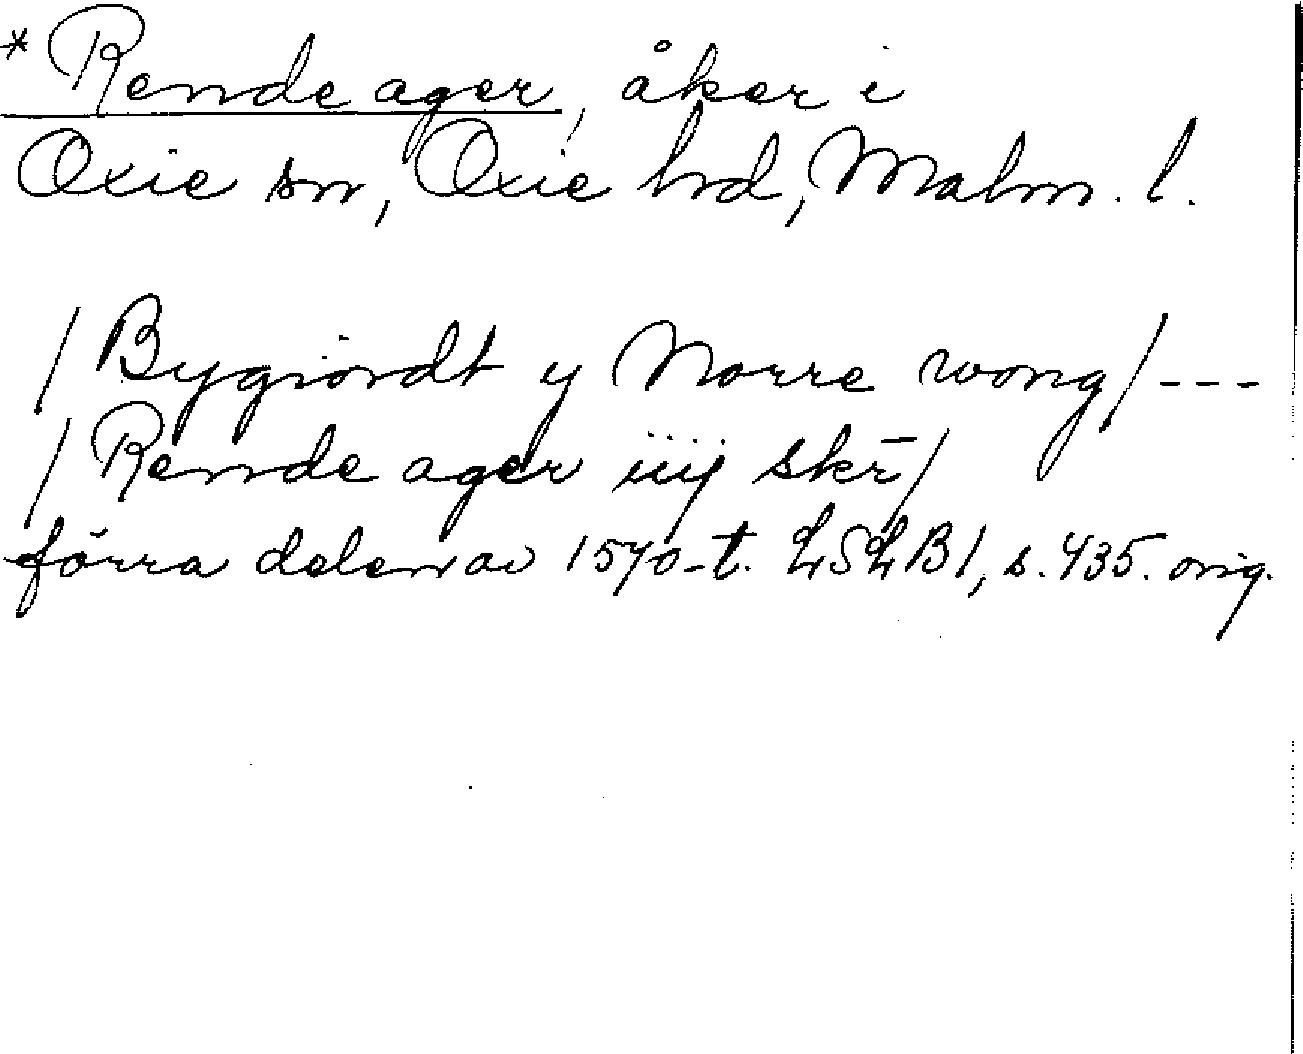 * Rende ager, åker i
Oxie sn, Oxie hd, Malm. l.
/Bygiordt y Norre wong/---
/Rende ager iiij skr̄/
förra delen av 1570-t. LSLB1, s. 435. orig.